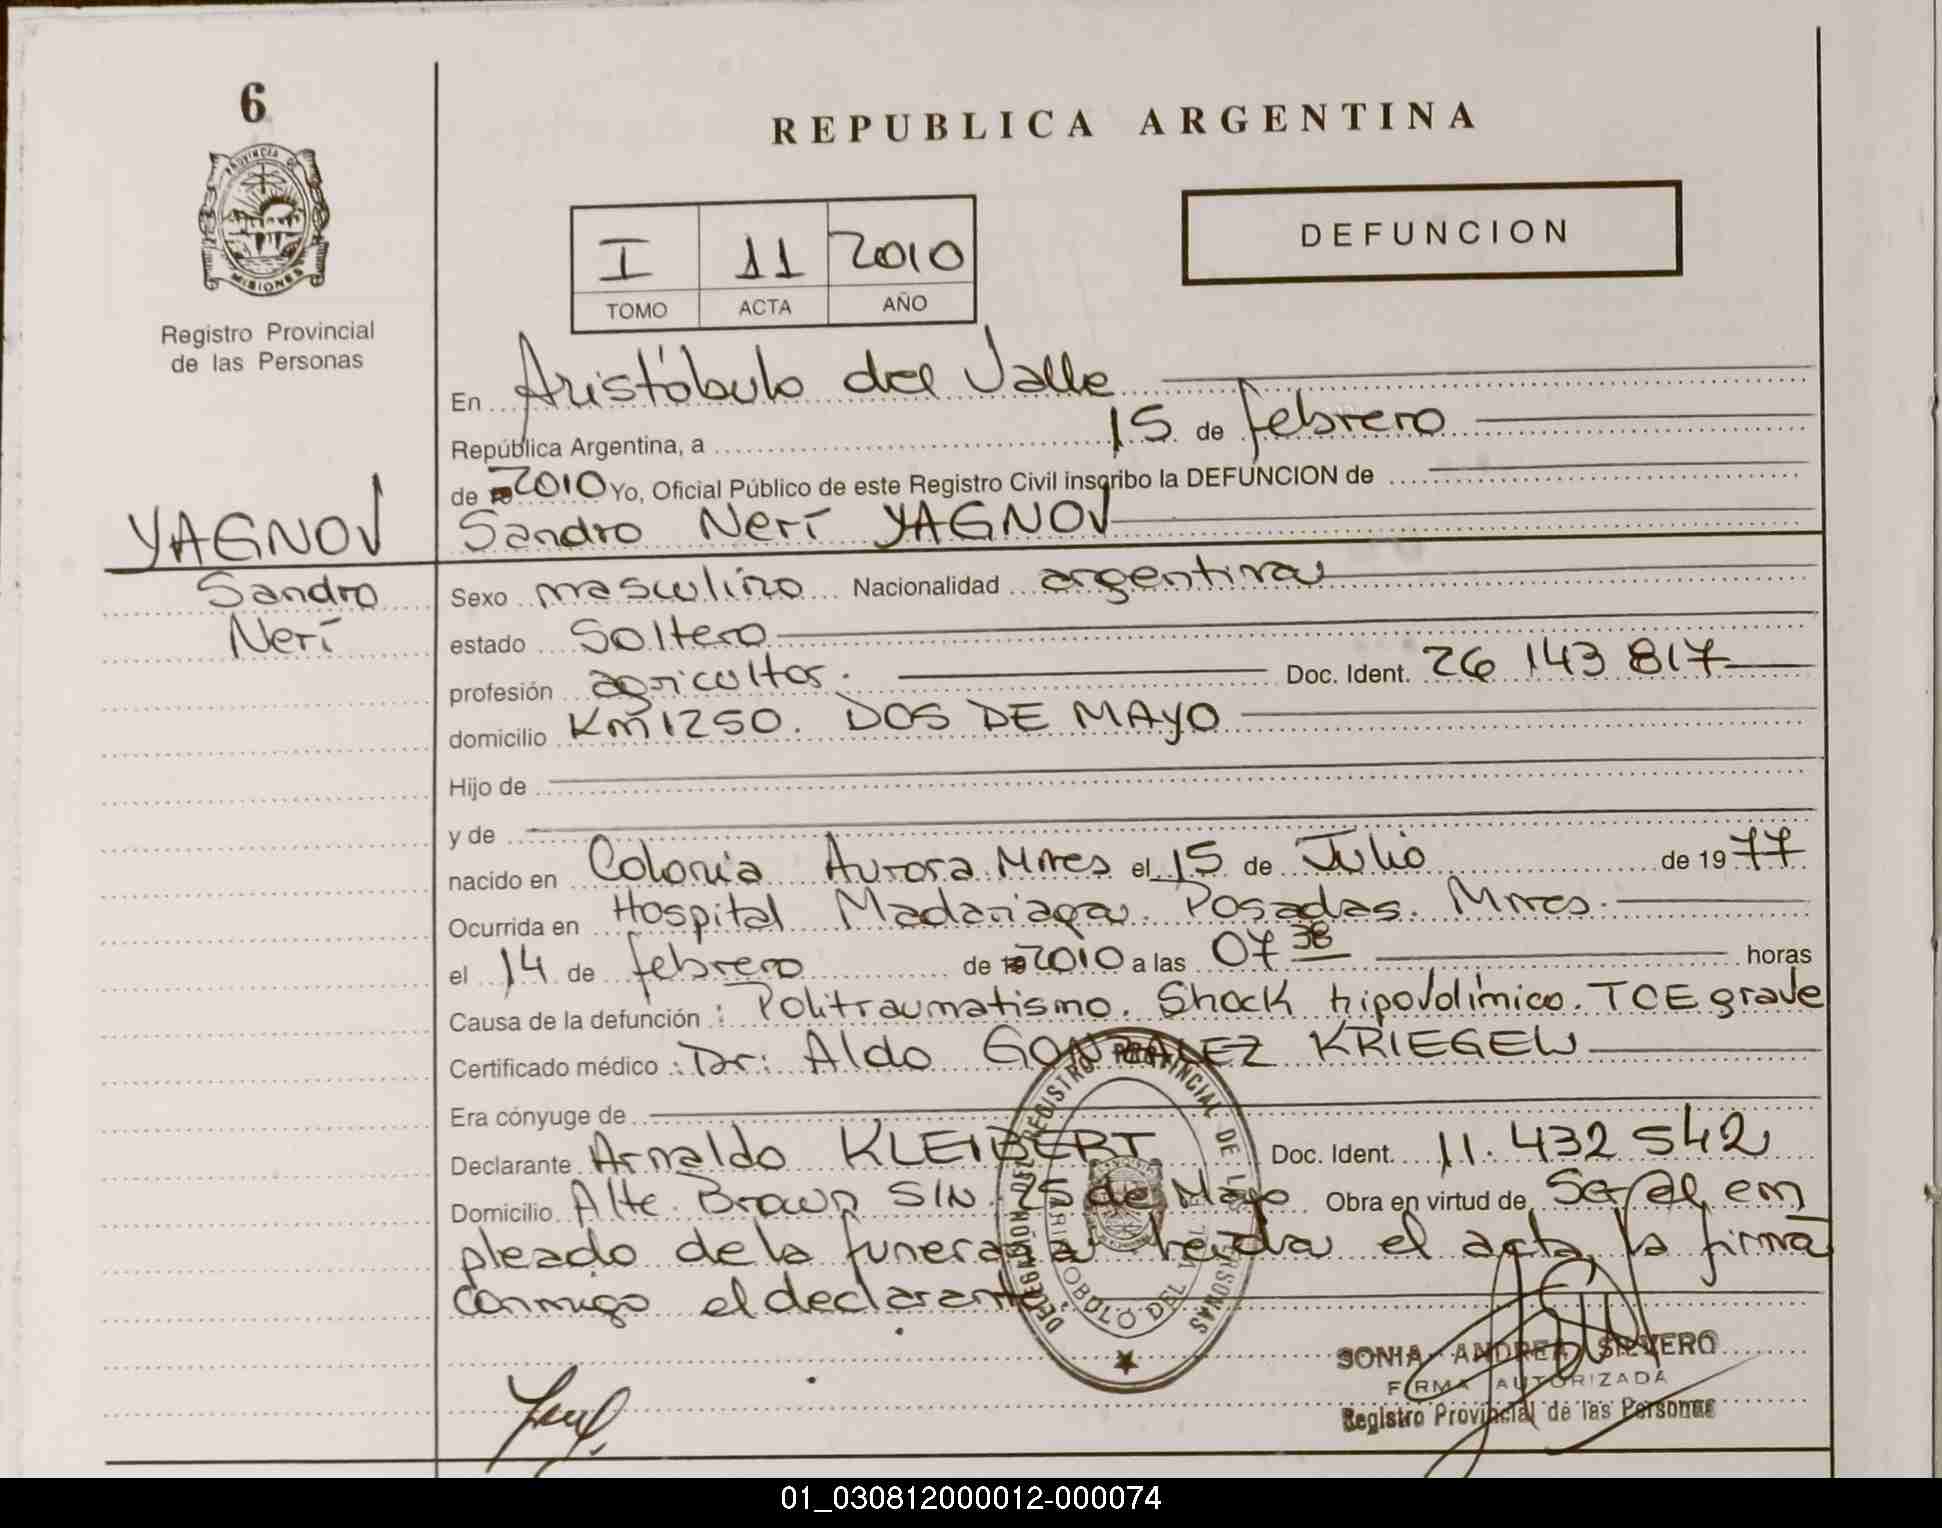 6
REPUBLICA ARGENTINA
PROVINCIA DE
MISIONES
Registro Provincial
de las Personas
I 11 2010
TOMO ACTA AÑO
DEFUNCION
En Aristóbulo del Valle
República Argentina, a 15 de febrero
de 2010 Yo, Oficial Público de este Registro Civil inscribo la DEFUNCION de
YAGNOV Sandro Neri YAGNOV
Sandro
Neri
Sexo masculino Nacionalidad argentina
estado Soltero
profesión agricultor. Doc. Ident. 26 143 817
domicilio Km 1250. DOS DE MAYO
Hijo de
y de
nacido en Colonia Aurora Mnes el 15 de Julio de 1977
Ocurrida en Hospital Madariaga. Posadas. Mnes.
el 14 de febrero de 2010 a las 07 38 horas
Causa de la defunción: Politraumatismo. Shock hipovolímico. TCE grave
Certificado médico: Dr: Aldo GONZALEZ KRIEGEL
Era cónyuge de
Declarante Arnaldo KLEIBERT Doc. Ident. 11.432 542
Domicilio Alte. Brown S/N 25 de Mayo Obra en virtud de Ser el em
pleado de la funeraria leida el acta, la firma
conmigo el declarante
DELEGACION DEL REGISTRO PROVINCIAL DE LAS PERSONAS
DEL
SONIA ANDREA SILVERO
FIRMA AUTORIZADA
Registro Provincial de las Personas
01_030812000012-000074